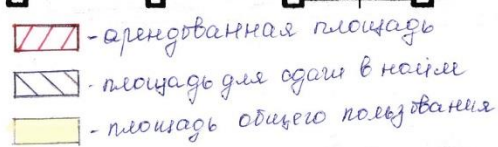 - арендованная площадь
- площадь для сдачи в наём
- площадь общего пользования